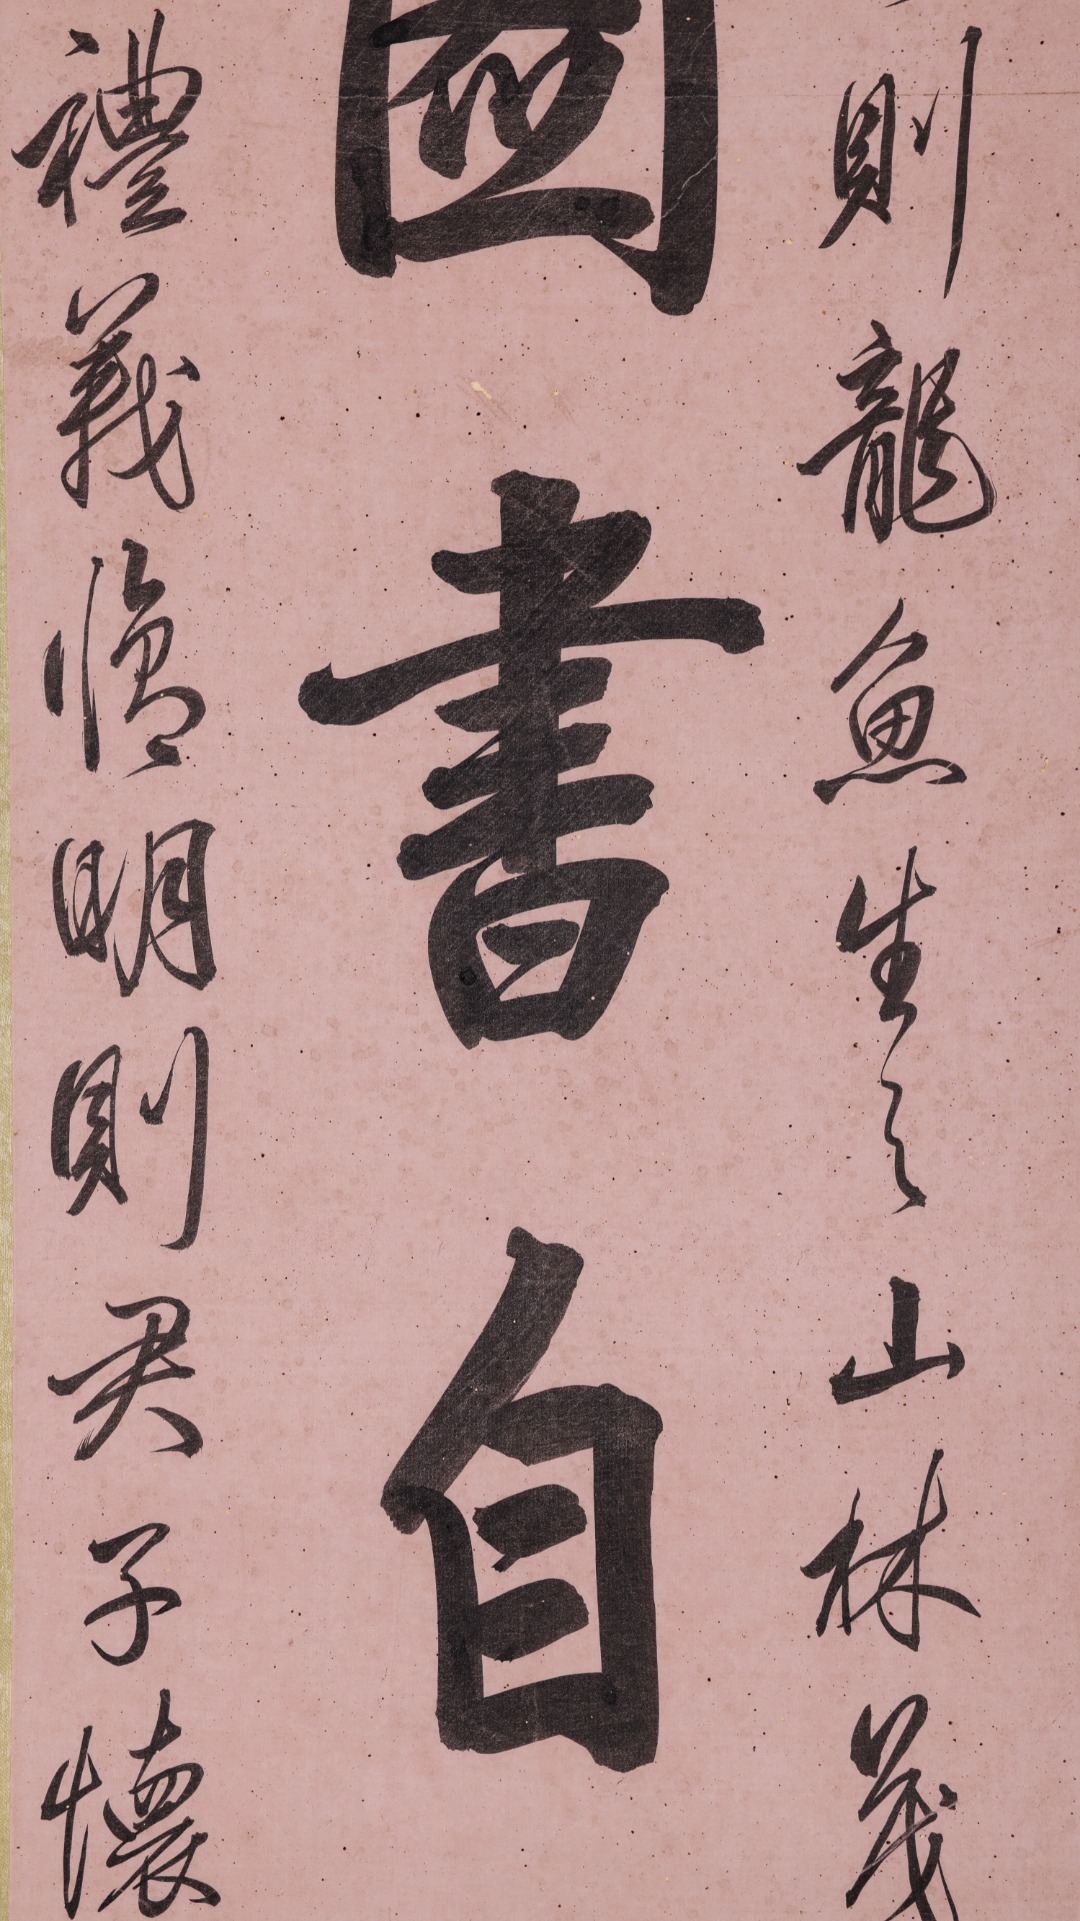 則龍魚生之山林茂
圖書自
禮義脩明則君子懷